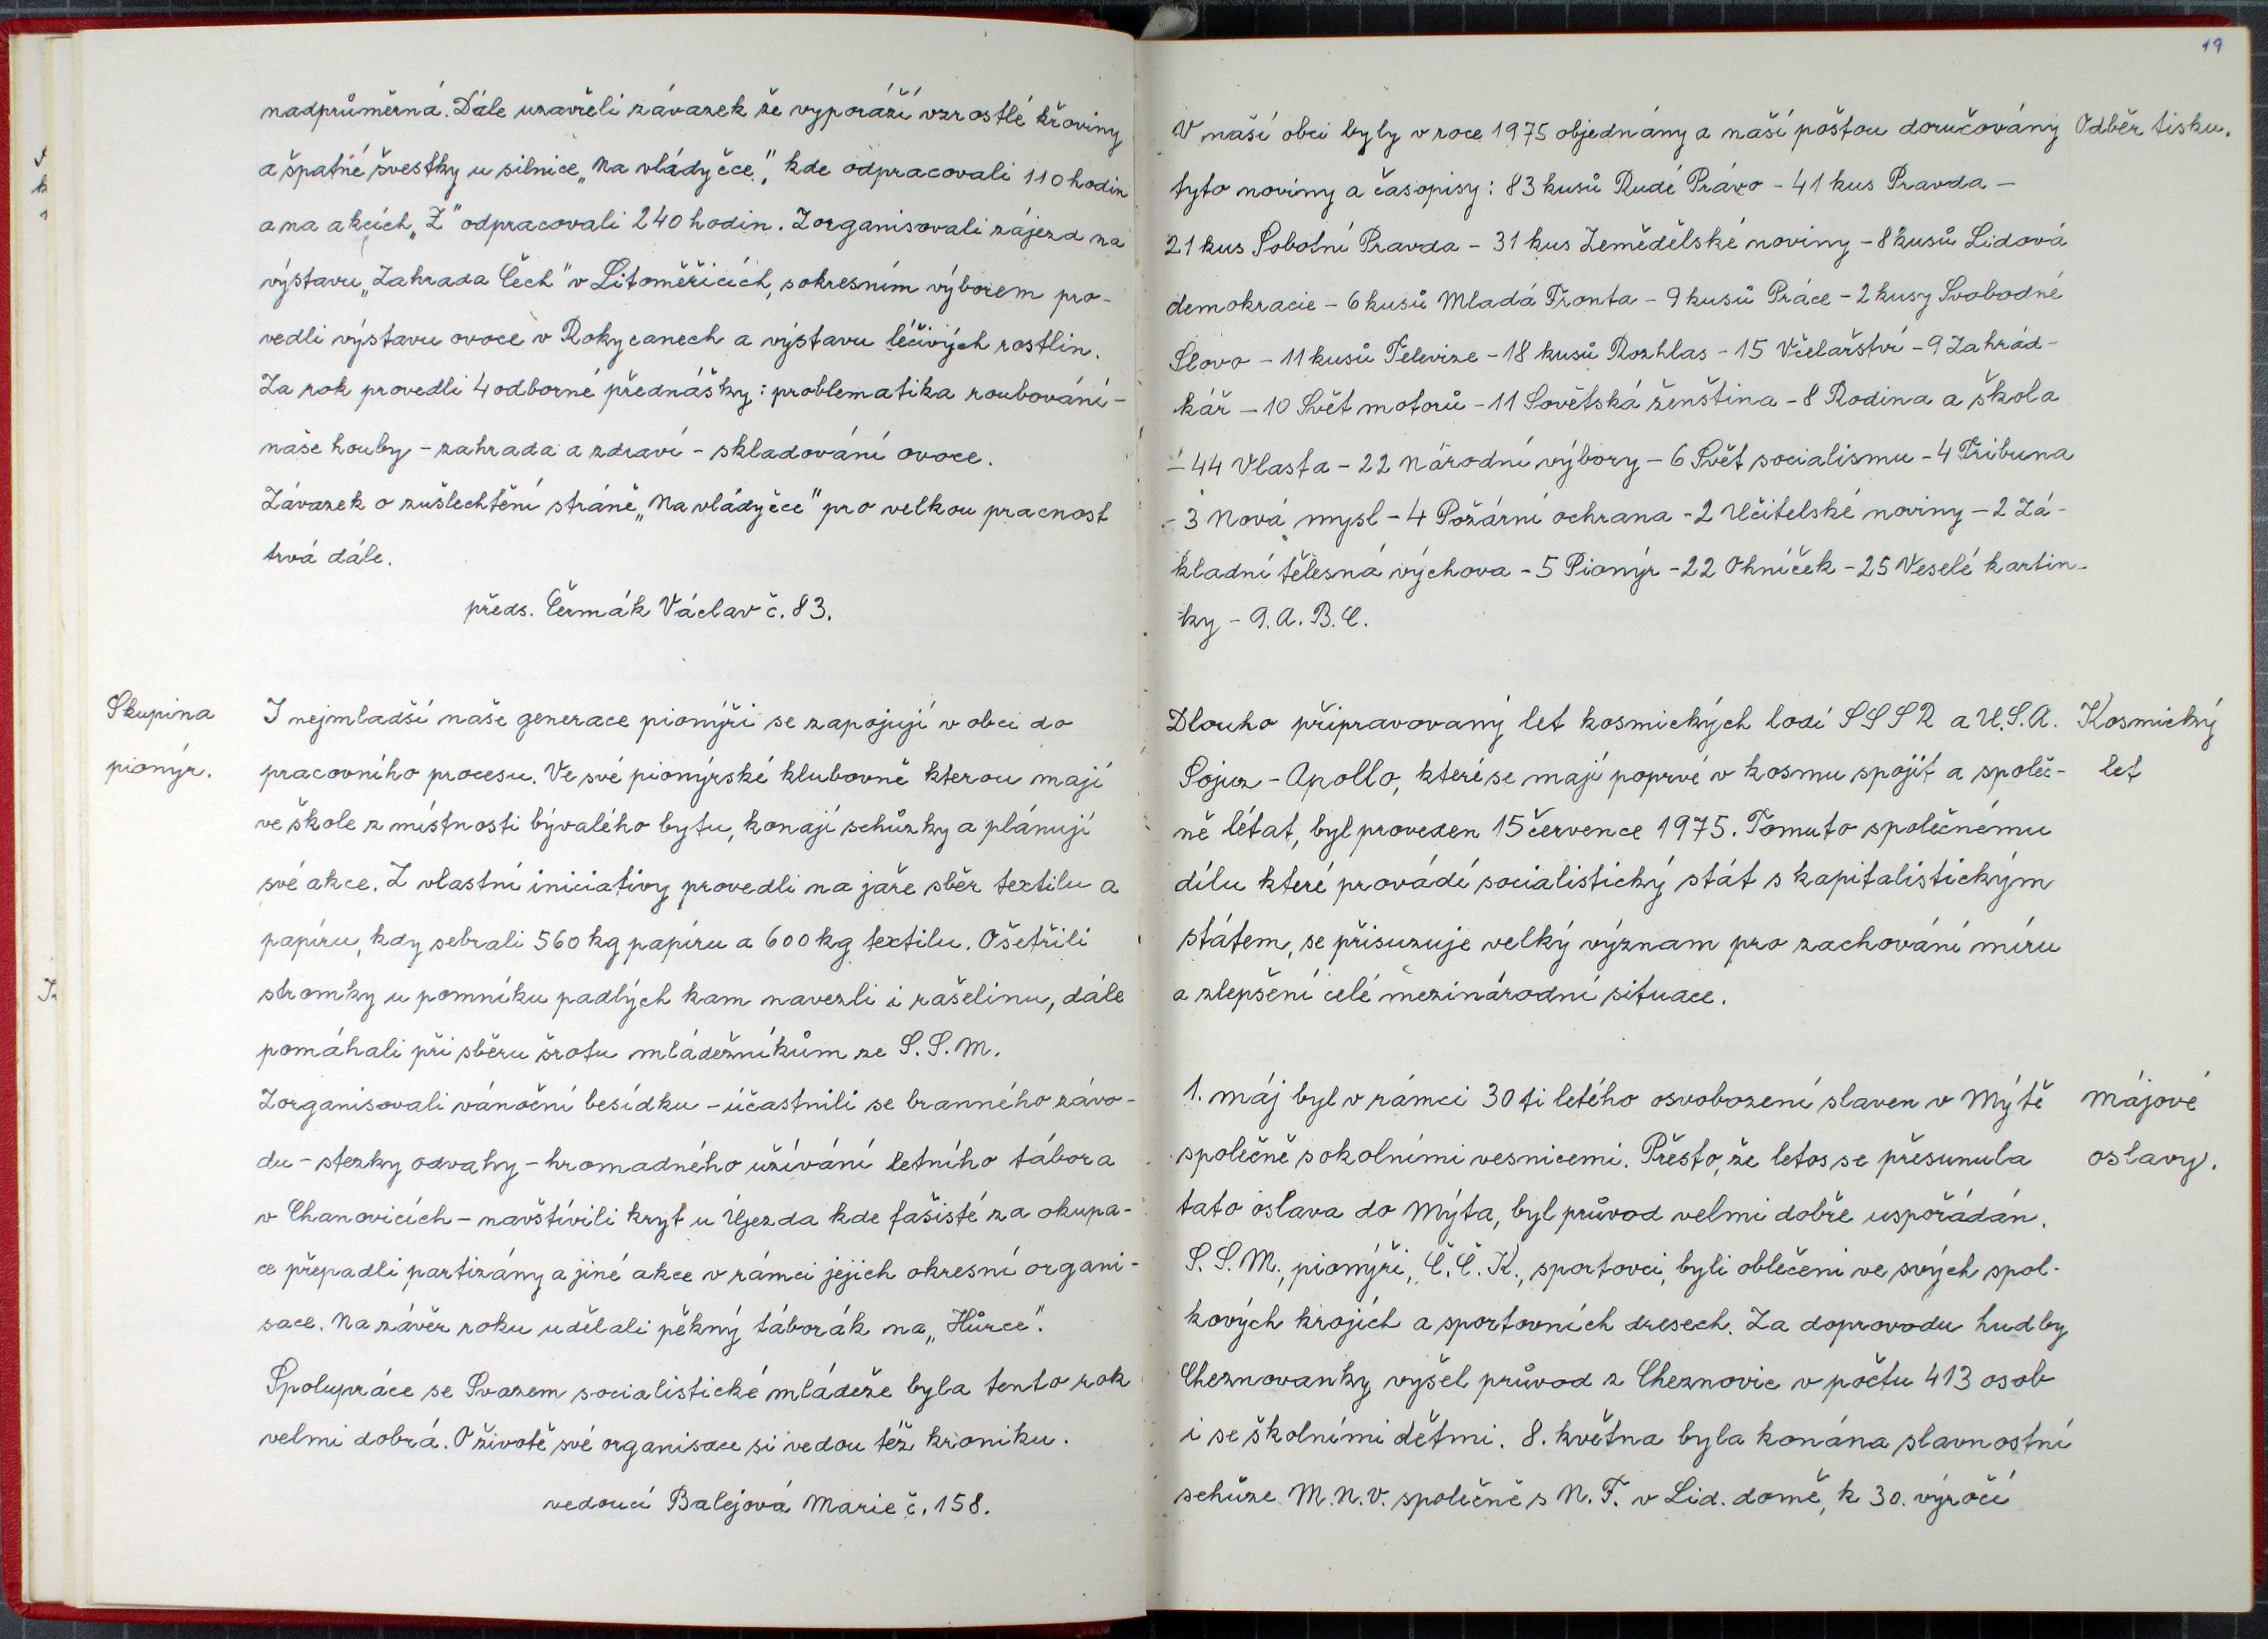 nadprůměrná. Dále uzavřeli závazek že vyporáží vzrostlé křoviny
a špatné švestky u silnice „Na vládyčce", kde odpracovali 110 hodin
a na akcích „Z" odpracovali 240 hodin. Zorganisovali zájezd na
výstavu „Zahrada Čech" v Litoměřicích, s okresním výborem pro-
vedli výstavu ovoce v Rokycanech a výstavu léčivých rostlin.
Za rok provedli 4 odborné přednášky: problematika roubování -
naše houby - zahrada a zdraví - skladování ovoce.
Závazek o zušlechtění stráně „Na vládyčce" pro velkou pracnost
trvá dále.
předs. Čermák Václav č. 83.
Skupina
pionýr.
I nejmladší naše generace pionýři se zapojují v obci do
pracovního procesu. Ve své pionýrské klubovně kterou mají
ve škole z místnosti bývalého bytu, konají schůzky a plánují
své akce. Z vlastní iniciativy provedli na jaře sběr textilu a
papíru, kdy sebrali 560 kg papíru a 600 kg textilu. Ošetřili
stromky u pomníku padlých kam navezli i rašelinu, dále
pomáhali při sběru šrotu mládežníkům ze S. S. M.
Zorganisovali vánoční besídku - účastnili se branného závo-
du - stezky odvahy - hromadného užívání letního tábora
v Chanovicích - navštívili kryt u Újezda kde fašisté za okupa-
ce přepadli partizány a jiné akce v rámci jejich okresní organi-
sace. Na závěr roku udělali pěkný táborák na „Hůrce".
Spolupráce se Svazem socialistické mládeže byla tento rok
velmi dobrá. O životě své organisace si vedou též kroniku.
vedoucí Balejová Marie č. 158.
19
V naší obci byly v roce 1975 objednány a naší poštou doručovány
tyto noviny a časopisy: 83 kusů Rudé Právo - 41 kus Pravda -
21 kus Sobotní Pravda - 31 kus Zemědělské noviny - 8 kusů Lidová
demokracie - 6 kusů Mladá Fronta - 9 kusů Práce - 2 kusy Svobodné
Slovo - 11 kusů Televize - 18 kusů Rozhlas - 15 Včelařství - 9 Zahrád-
kář - 10 Svět motorů - 11 Sovětská ženština - 8 Rodina a škola
- 44 Vlasta - 22 Národní výbory - 6 Svět socialismu - 4 Tribuna
- 3 Nová mysl - 4 Požární ochrana - 2 Učitelské noviny - 2 Zá-
kladní tělesná výchova - 5 Pionýr - 22 Ohníček - 25 Veselé kartin-
ky - 9. A. B. C.
Odběr tisku.
Dlouho připravovaný let kosmických lodí SSSR a U.S.A.
Sojuz - Apollo, které se mají poprvé v kosmu spojit a společ-
ně létat, byl proveden 15 července 1975. Tomuto společnému
dílu které provádí socialistický stát s kapitalistickým
státem, se přisuzuje velký význam pro zachování míru
a zlepšení celé mezinárodní situace.
Kosmický
let
1. máj byl v rámci 30 ti letého osvobození slaven v Mýtě
společně s okolními vesnicemi. Přesto, že letos se přesunula
tato oslava do Mýta, byl průvod velmi dobře uspořádán.
S. S. M., pionýři, Č. Č. K., sportovci, byli oblečeni ve svých spol-
kových krojích a sportovních dresech. Za doprovodu hudby
Cheznovanky vyšel průvod z Cheznovic v počtu 413 osob
i se školními dětmi. 8. května byla konána slavnostní
schůze M. N. V. společně s N. F. v Lid. domě, k 30. výročí
májové
oslavy.